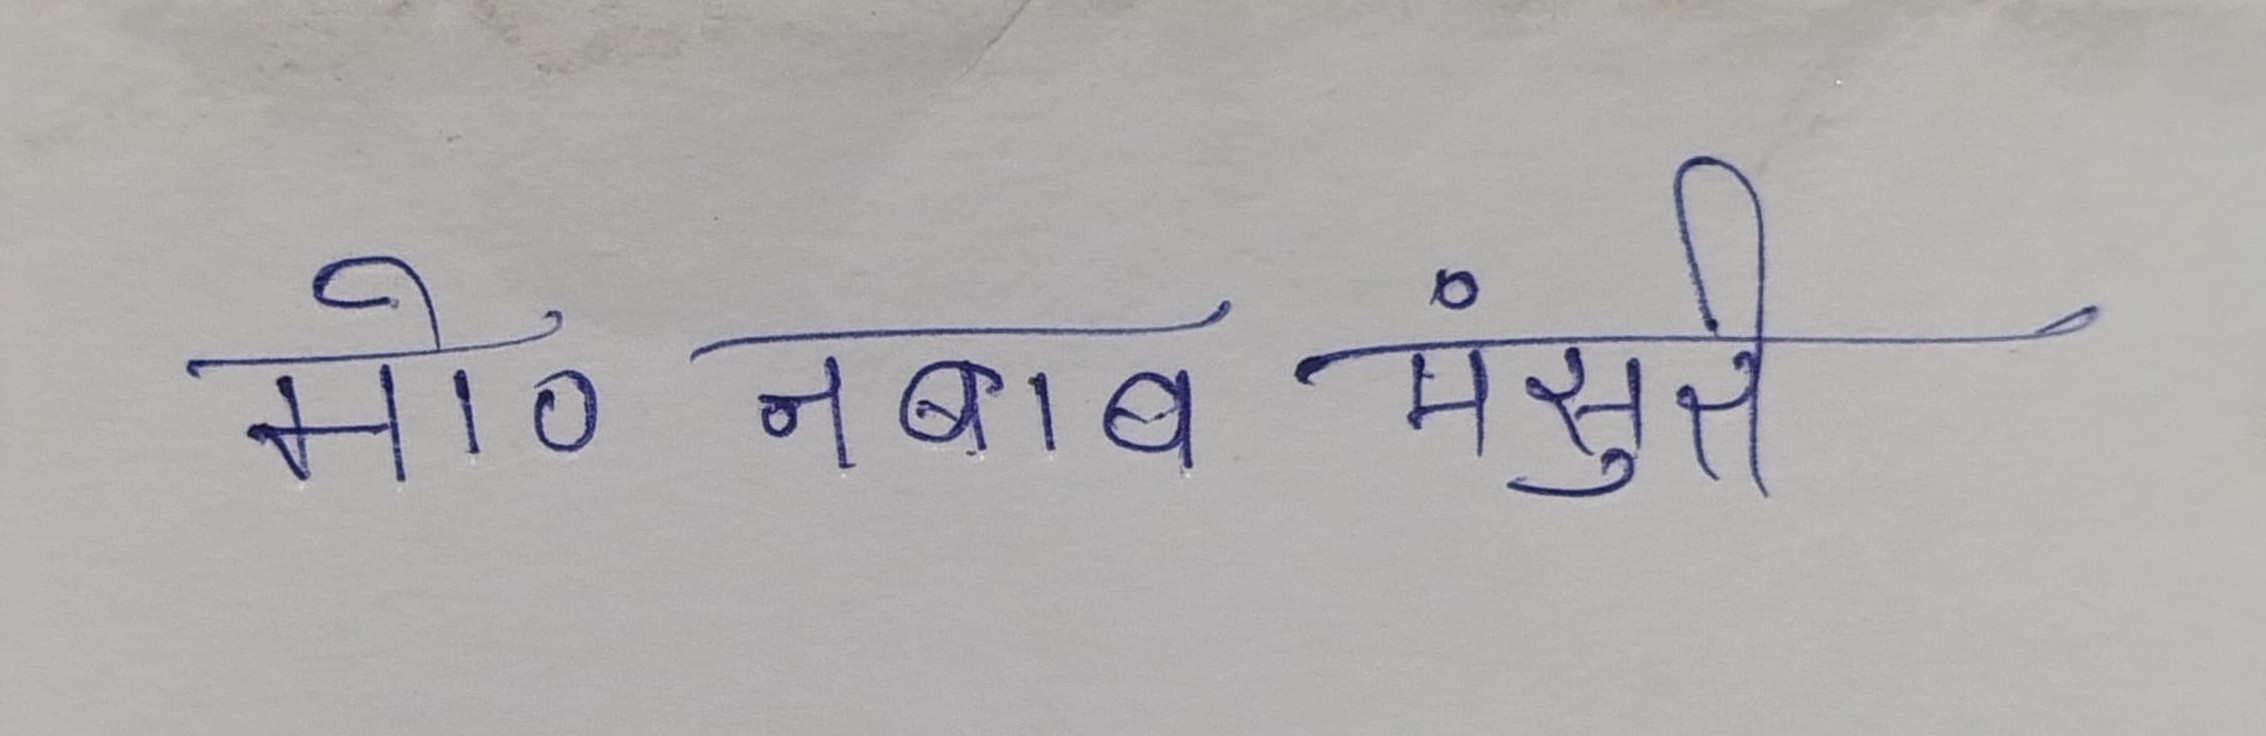 मो० नबाब मंसुरी